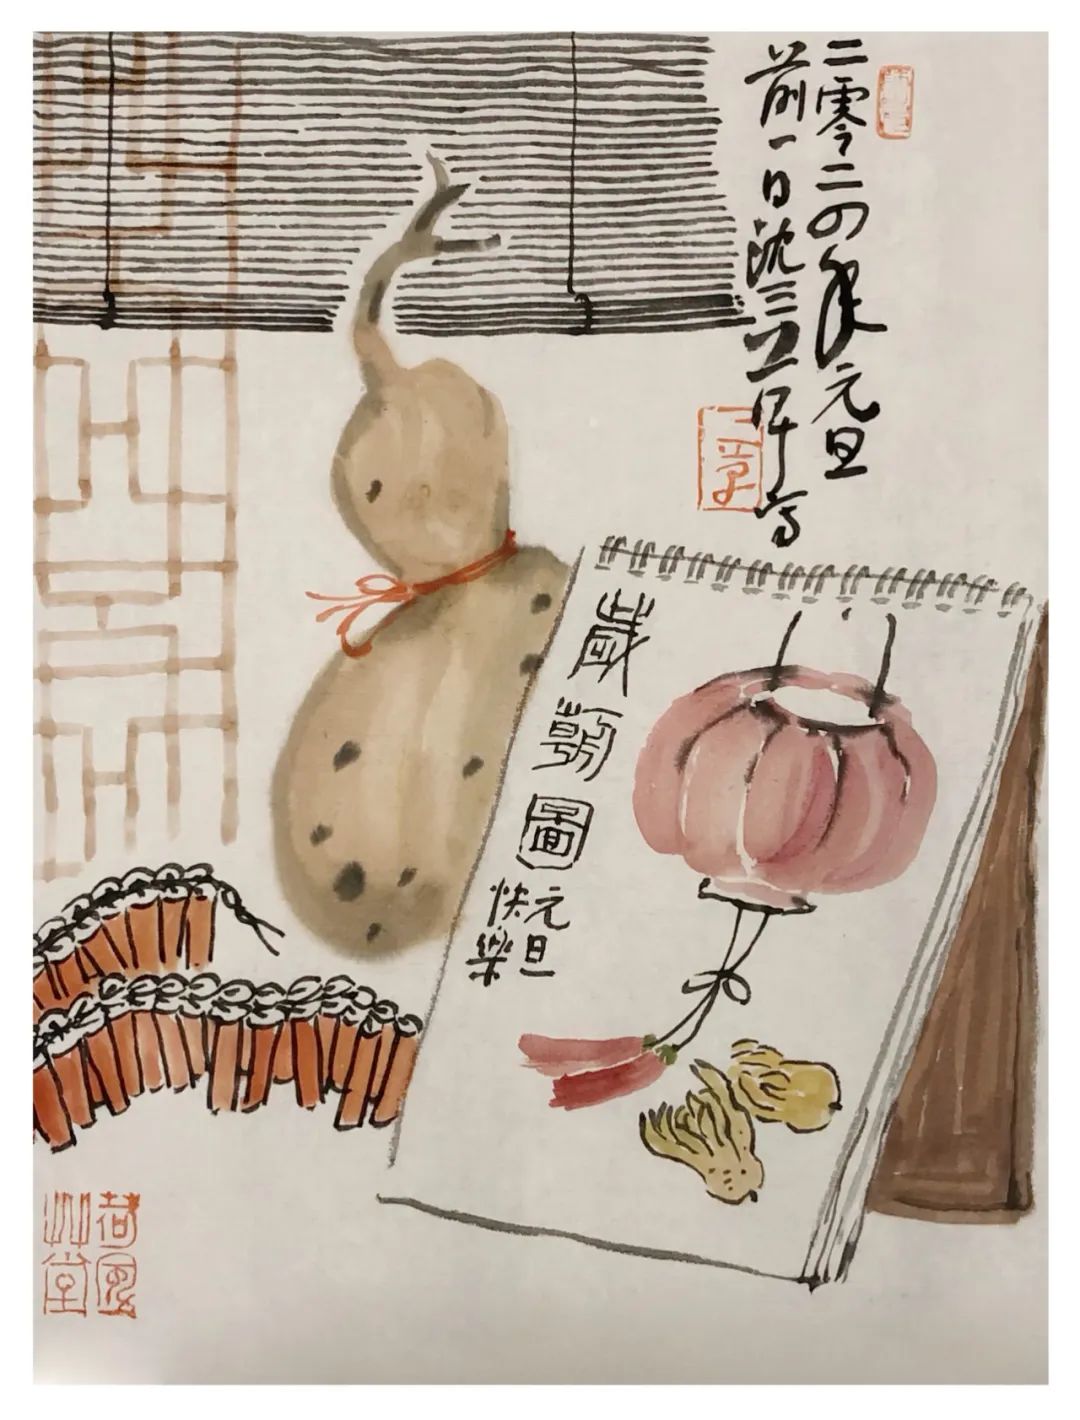 二零二四年元旦
前一日沈三草写
三草
歲朝圖
元旦
快樂
荷風
艸堂